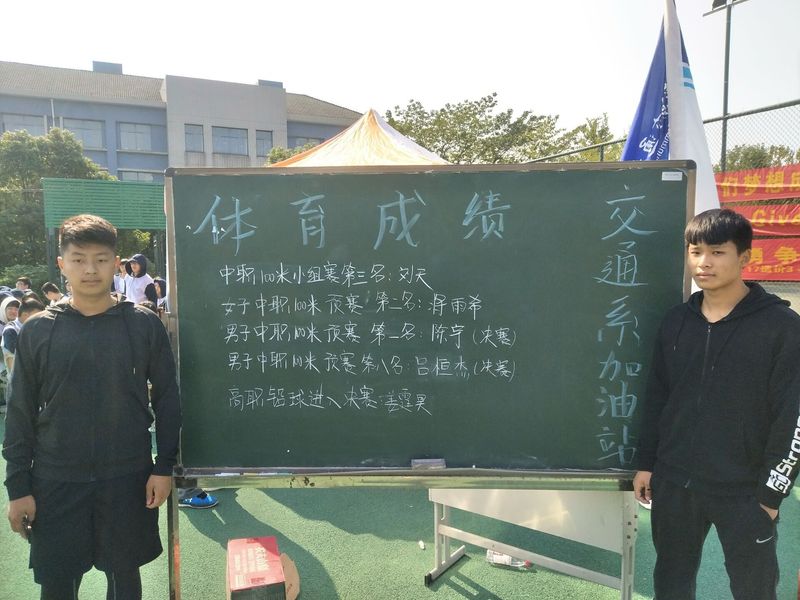 体育成绩
中职100米小组赛第三名:刘天
女子中职100米预赛 第二名:蒋雨希
男子中职100米预赛 第一名:陈宇(决赛)
男子中职100米预赛第八名:吕桓杰(决赛)
高职铅球进入决赛:姜霆昊
交通系加油站
们梦想
Give
勇争
Strong